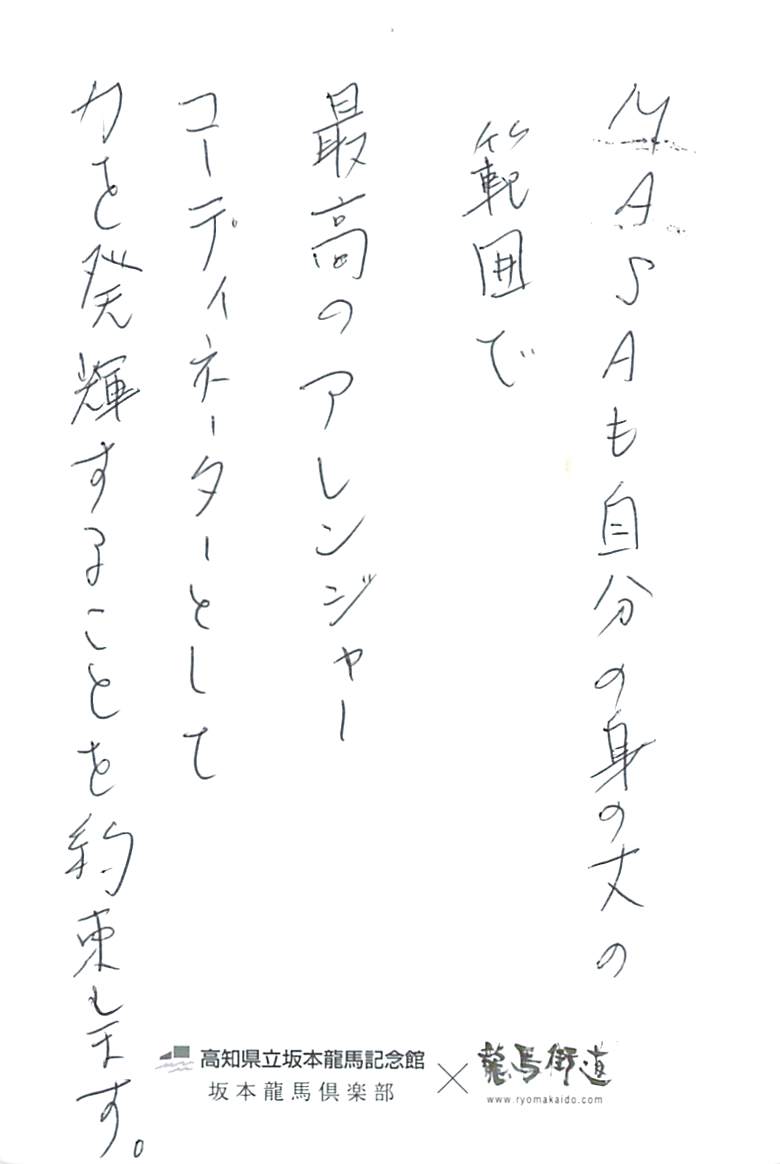 MASAも自分の身の丈の
範囲で
最高のアレンジャー
コーディネーターとして
力を発輝することを約束します。
高知県立坂本龍馬記念館
坂本龍馬倶楽部
×
龍馬街道
www.ryomakaido.com